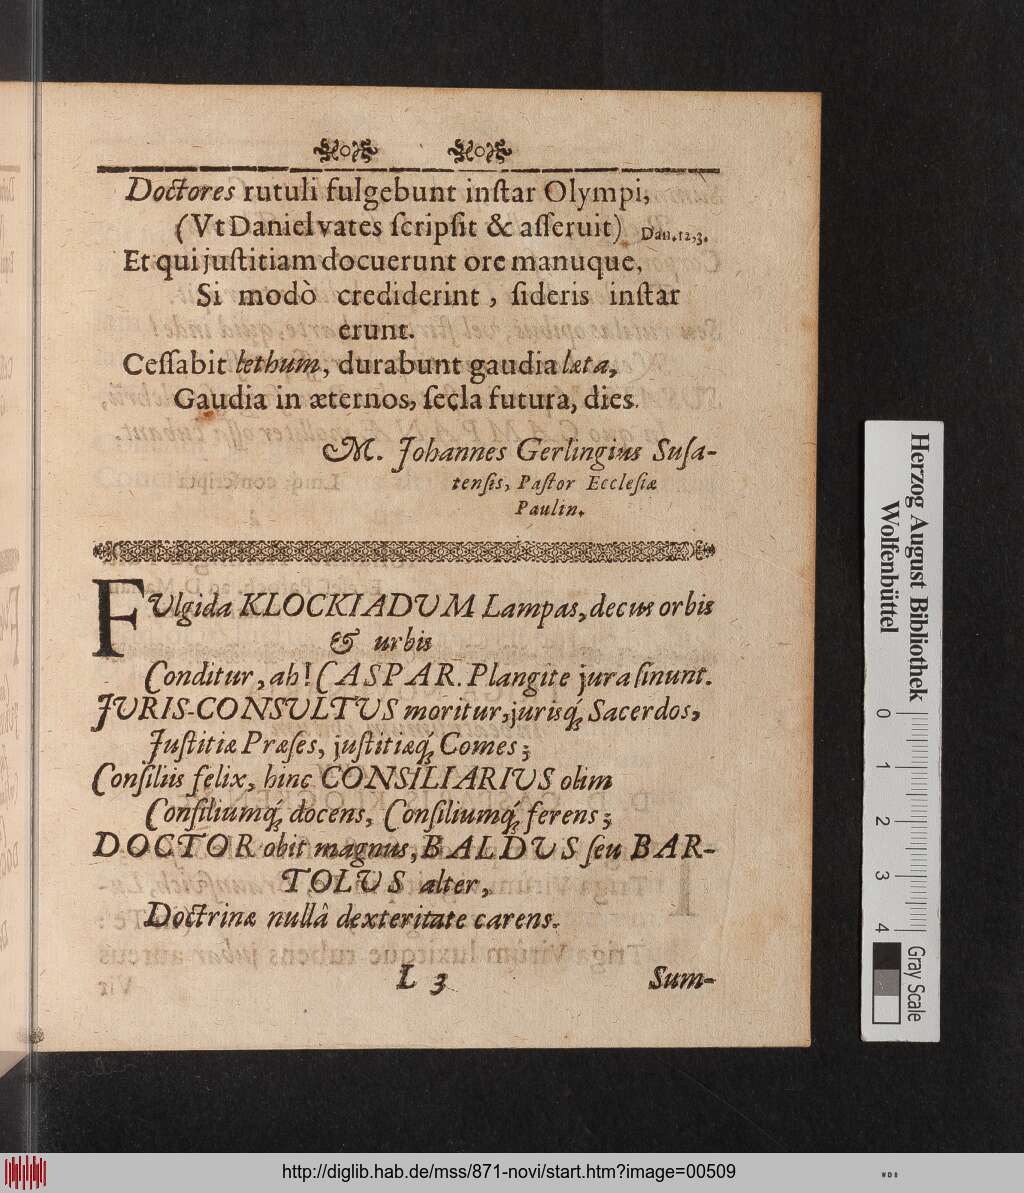 Doctores rutuli fulgebunt inſtar Olympi,
(Vt Daniel vates ſcripſit & aſſeruit) Dan. 12, 3.
Et qui juſtitiam docuerunt ore manuque,
Si modò crediderint, ſideris inſtar
erunt.
Ceſſabit lethum, durabunt gaudia læta,
Gaudia in æternos, ſecla futura, dies.
M. Johannes Gerlingius Suſa-
tenſis, Paſtor Eccleſiæ
Paulin.
FVlgida KLOCKIADUM Lampas, decus orbis
& urbis
Conditur, ah! CASPAR. Plangite jura ſinunt.
JURIS-CONSVLTUS moritur, jurisq́; Sacerdos,
Juſtitiæ Præſes, juſtitiæq́; Comes;
Conſiliis felix, hinc CONSILIARIUS olim
Conſiliumq́; docens, Conſiliumq́; ferens;
DOCTOR obit magnus, BALDUS ſeu BAR-
TOLUS alter,
Doctrinæ nullâ dexteritate carens.
L 3 Sum-
Herzog August Bibliothek
Wolfenbüttel
0 1 2 3 4
Gray Scale
http://diglib.hab.de/mss/871-novi/start.htm?image=00509